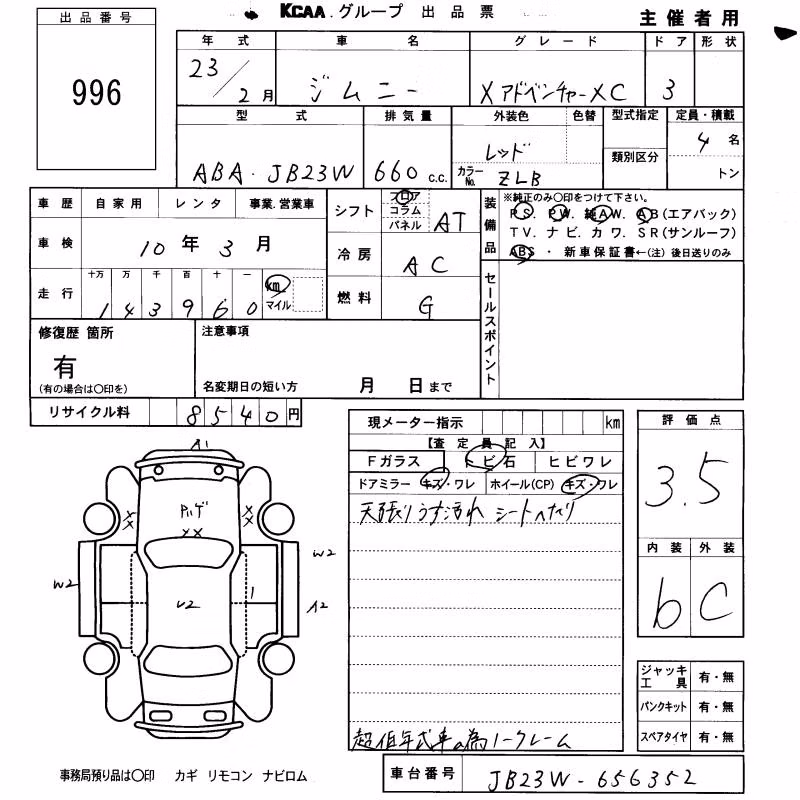 KCAA.グループ 出品票
主催者用
出品番号
996
年式 車名 グレード ドア 形状
23/2月 ジムニー Xアドベンチャー XC 3
型式 排気量 外装色 色替 型式指定 定員・積載
ABA・JB23W 660 c.c. レッド 4名
カラーNo. ZLB 類別区分 トン
車歴 自家用 レンタ 事業.営業車
シフト フロア コラム パネル AT
装備品 ※純正のみ○印をつけて下さい。
PS. PW. 純AW. AB(エアバック)
TV. ナビ. カワ. SR(サンルーフ)
ABS ・ 新車保証書←(注) 後日送りのみ
車検 10年3月
冷房 AC
セールスポイント
走行 十万 万 千 百 十 一
143960 km マイル
燃料 G
修復歴 箇所
有
(有の場合は○印を)
注意事項
名変期日の短い方 月 日まで
リサイクル料 8540円
現メーター指示 km
【査定員記入】
Fガラス トビ石 ヒビワレ
ドアミラー キズ・ワレ ホイール(CP) キズ・ワレ
天張りうす汚れ シートヘタリ
超低年式車の為ノークレーム
評価点
3.5
内装 外装
b C
A1
XX
XX
XX
W2
W2
A2
U2
1
ジャッキ工具 有・無
パンクキット 有・無
スペアタイヤ 有・無
事務局預り品は○印 カギ リモコン ナビロム
車台番号 JB23W-656352